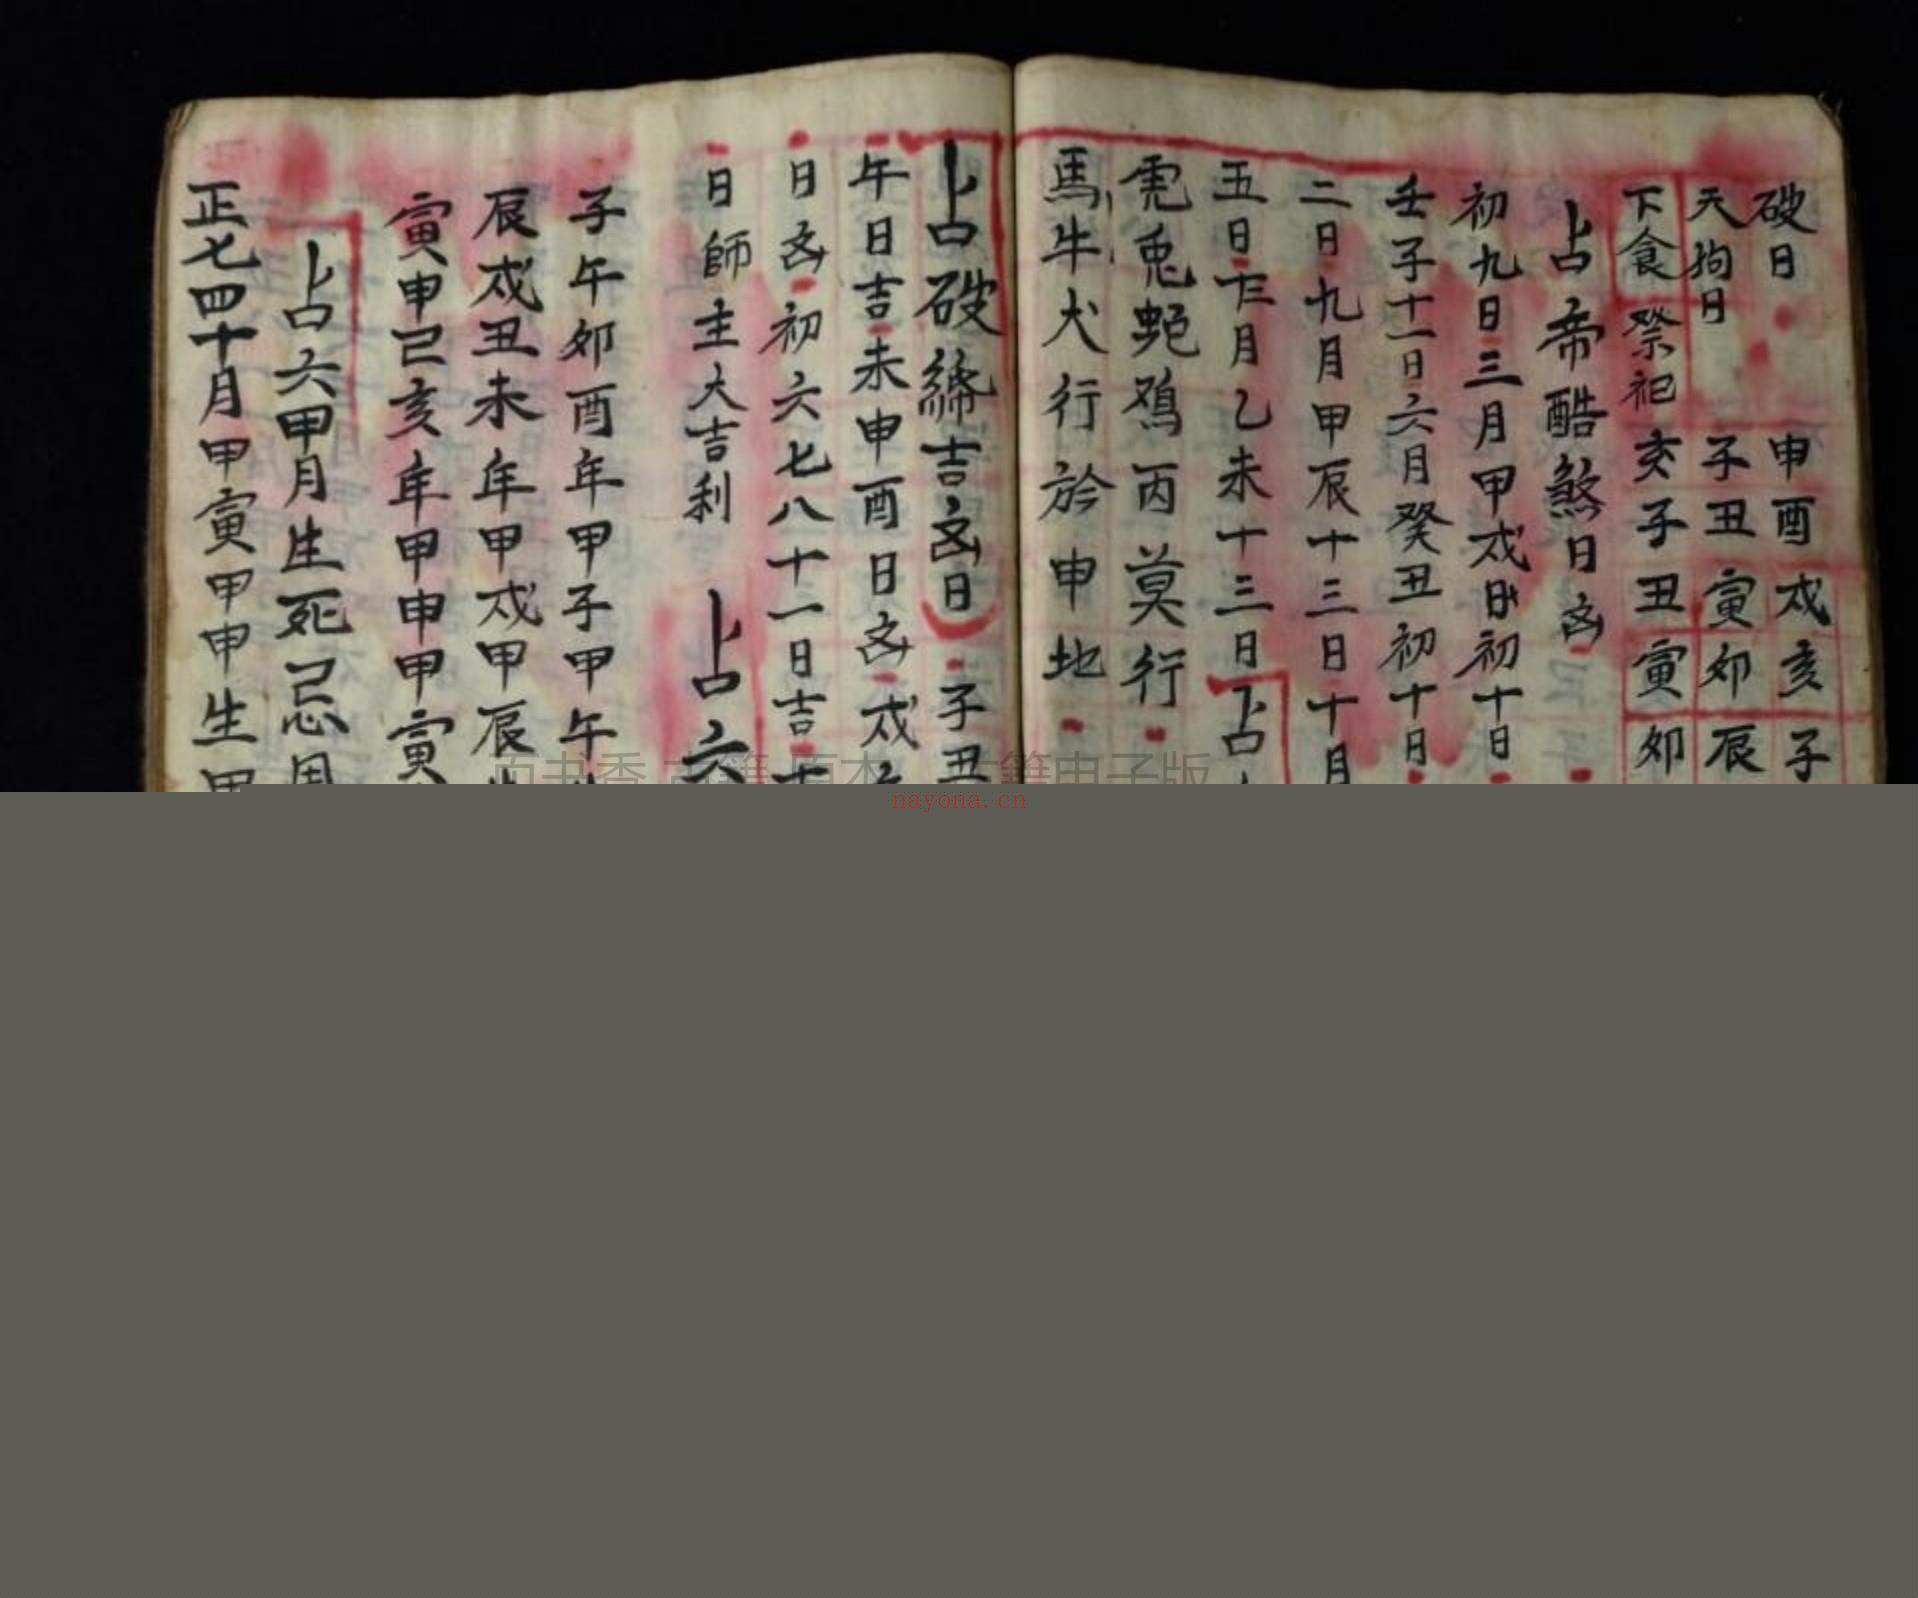 破日 申酉戌亥子
天狗日 子丑寅卯辰
下食 祭祀 亥子丑寅卯
占帝酷煞日㐫
初九日三月甲戌日初十日
壬子十一日六月癸丑初十日
二日九月甲辰十三日十月
五日十二月乙未十三日占
兎蛇鸡丙莫行
馬牛犬行於申地
占破 吉㐫日 子丑
午日吉未申酉日㐫戌
日㐫初六七八十一日吉十
日師主大吉利 占六
子午卯酉年甲子甲午
辰戌丑未年甲戌甲辰
寅申己亥年甲申甲寅
占六甲月生死忌用
正七四十月甲寅甲申生甲
nayona.cn